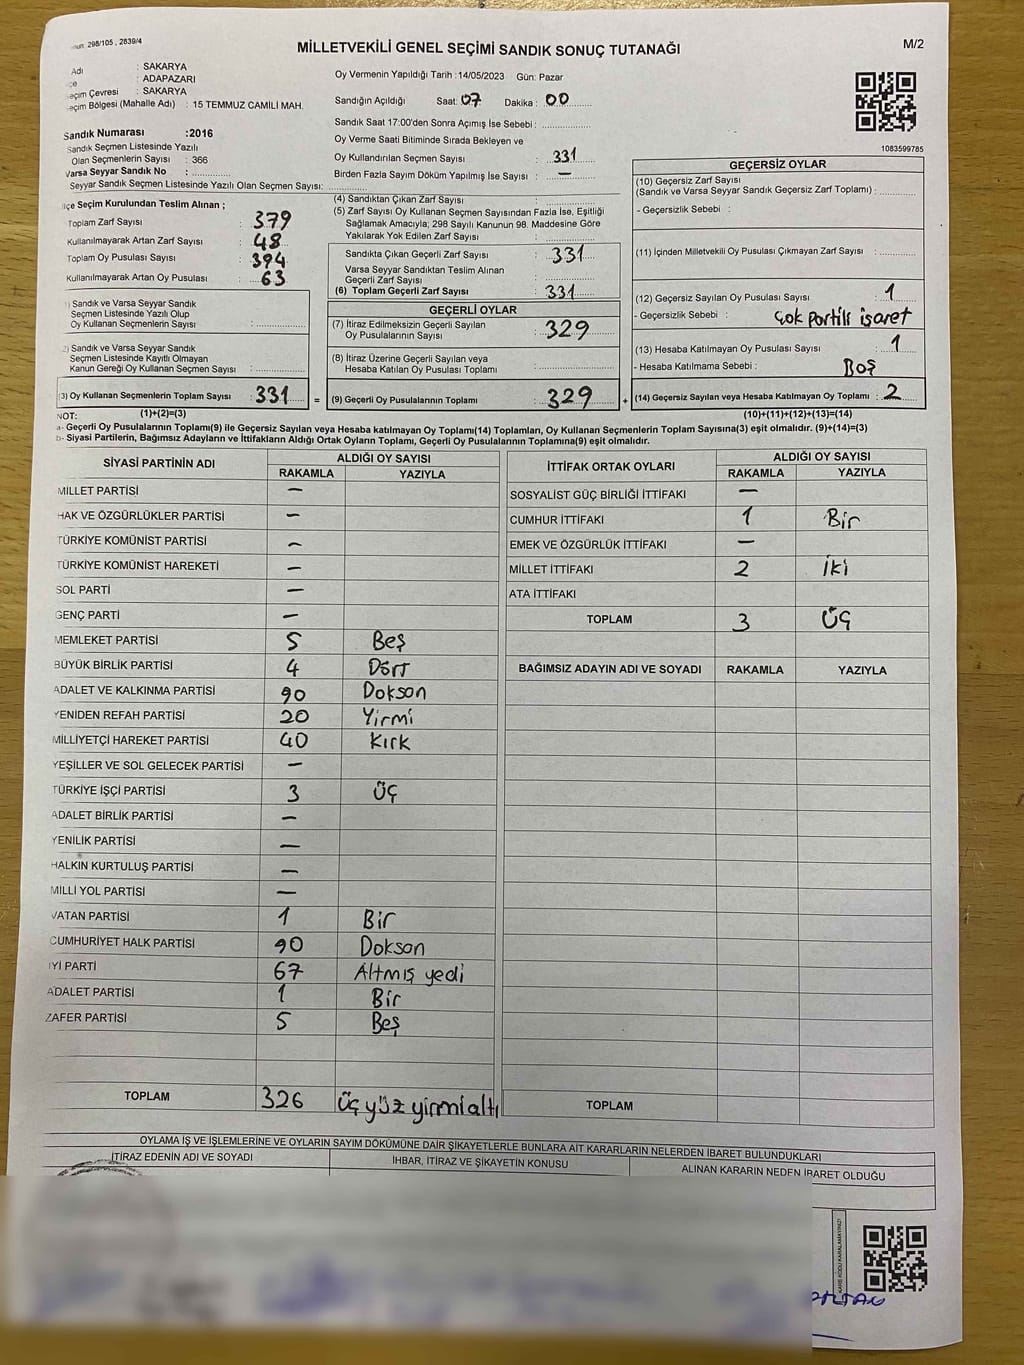 298/105 , 2839/4
MİLLETVEKİLİ GENEL SEÇİMİ SANDIK SONUÇ TUTANAĞI
M/2
Adı : SAKARYA
: ADAPAZARI
Seçim Çevresi : SAKARYA
Seçim Bölgesi (Mahalle Adı) : 15 TEMMUZ CAMİLİ MAH.
Oy Vermenin Yapıldığı Tarih :14/05/2023 Gün: Pazar
Sandığın Açıldığı Saat: 07 Dakika : 00
Sandık Saat 17:00'den Sonra Açmış İse Sebebi :
Oy Verme Saati Bitiminde Sırada Bekleyen ve
Oy Kullandırılan Seçmen Sayısı : 331
Birden Fazla Sayım Döküm Yapılmış İse Sayısı : —
1083599785
Sandık Numarası :2016
Sandık Seçmen Listesinde Yazılı
Olan Seçmenlerin Sayısı : 366
Varsa Seyyar Sandık No :
Seyyar Sandık Seçmen Listesinde Yazılı Olan Seçmen Sayısı:
İlçe Seçim Kurulundan Teslim Alınan ;
Toplam Zarf Sayısı : 379
Kullanılmayarak Artan Zarf Sayısı : 48
Toplam Oy Pusulası Sayısı : 394
Kullanılmayarak Artan Oy Pusulası : 63
1) Sandık ve Varsa Seyyar Sandık
Seçmen Listesinde Yazılı Olup
Oy Kullanan Seçmenlerin Sayısı :
2) Sandık ve Varsa Seyyar Sandık
Seçmen Listesinde Kayıtlı Olmayan
Kanun Gereği Oy Kullanan Seçmen Sayısı :
(3) Oy Kullanan Seçmenlerin Toplam Sayısı : 331 =
(4) Sandıktan Çıkan Zarf Sayısı :
(5) Zarf Sayısı Oy Kullanan Seçmen Sayısından Fazla İse, Eşitliği
Sağlamak Amacıyla; 298 Sayılı Kanunun 98. Maddesine Göre
Yakılarak Yok Edilen Zarf Sayısı :
Sandıkta Çıkan Geçerli Zarf Sayısı : 331
Varsa Seyyar Sandıktan Teslim Alınan
Geçerli Zarf Sayısı :
(6) Toplam Geçerli Zarf Sayısı : 331
GEÇERLİ OYLAR
(7) İtiraz Edilmeksizin Geçerli Sayılan
Oy Pusulalarının Sayısı : 329
(8) İtiraz Üzerine Geçerli Sayılan veya
Hesaba Katılan Oy Pusulası Toplamı :
(9) Geçerli Oy Pusulalarının Toplamı : 329 +
GEÇERSİZ OYLAR
(10) Geçersiz Zarf Sayısı
(Sandık ve Varsa Seyyar Sandık Geçersiz Zarf Toplamı) :
- Geçersizlik Sebebi :
(11) İçinden Milletvekili Oy Pusulası Çıkmayan Zarf Sayısı :
(12) Geçersiz Sayılan Oy Pusulası Sayısı : 1
- Geçersizlik Sebebi : Çok partili işaret
(13) Hesaba Katılmayan Oy Pusulası Sayısı : 1
- Hesaba Katılmama Sebebi : Boş
(14) Geçersiz Sayılan veya Hesaba Katılmayan Oy Toplamı : 2
NOT: (1)+(2)=(3) (10)+(11)+(12)+(13)=(14)
a- Geçerli Oy Pusulalarının Toplamı(9) ile Geçersiz Sayılan veya Hesaba katılmayan Oy Toplamı(14) Toplamları, Oy Kullanan Seçmenlerin Toplam Sayısına(3) eşit olmalıdır. (9)+(14)=(3)
b- Siyasi Partilerin, Bağımsız Adayların ve İttifakların Aldığı Ortak Oyların Toplamı, Geçerli Oy Pusulalarının Toplamına(9) eşit olmalıdır.
SİYASİ PARTİNİN ADI ALDIĞI OY SAYISI
RAKAMLA YAZIYLA
MİLLET PARTİSİ —
HAK VE ÖZGÜRLÜKLER PARTİSİ —
TÜRKİYE KOMÜNİST PARTİSİ —
TÜRKİYE KOMÜNİST HAREKETİ —
SOL PARTİ —
GENÇ PARTİ —
MEMLEKET PARTİSİ 5 Beş
BÜYÜK BİRLİK PARTİSİ 4 Dört
ADALET VE KALKINMA PARTİSİ 90 Dokson
YENİDEN REFAH PARTİSİ 20 Yirmi
MİLLİYETÇİ HAREKET PARTİSİ 40 Kırk
YEŞİLLER VE SOL GELECEK PARTİSİ —
TÜRKİYE İŞÇİ PARTİSİ 3 Üç
ADALET BİRLİK PARTİSİ —
YENİLİK PARTİSİ —
HALKIN KURTULUŞ PARTİSİ —
MİLLİ YOL PARTİSİ —
VATAN PARTİSİ 1 Bir
CUMHURİYET HALK PARTİSİ 90 Dokson
İYİ PARTİ 67 Altmış yedi
ADALET PARTİSİ 1 Bir
ZAFER PARTİSİ 5 Beş
TOPLAM 326 üç yüz yirmialtı
İTTİFAK ORTAK OYLARI ALDIĞI OY SAYISI
RAKAMLA YAZIYLA
SOSYALİST GÜÇ BİRLİĞİ İTTİFAKI —
CUMHUR İTTİFAKI 1 Bir
EMEK VE ÖZGÜRLÜK İTTİFAKI —
MİLLET İTTİFAKI 2 iki
ATA İTTİFAKI
TOPLAM 3 üç
BAĞIMSIZ ADAYIN ADI VE SOYADI RAKAMLA YAZIYLA
TOPLAM
OYLAMA İŞ VE İŞLEMLERİNE VE OYLARIN SAYIM DÖKÜMÜNE DAİR ŞİKAYETLERLE BUNLARA AİT KARARLARIN NELERDEN İBARET BULUNDUKLARI
İTİRAZ EDENİN ADI VE SOYADI İHBAR, İTİRAZ VE ŞİKAYETİN KONUSU ALINAN KARARIN NEDEN İBARET OLDUĞU
KARE KODU KARALAMAYINIZ!